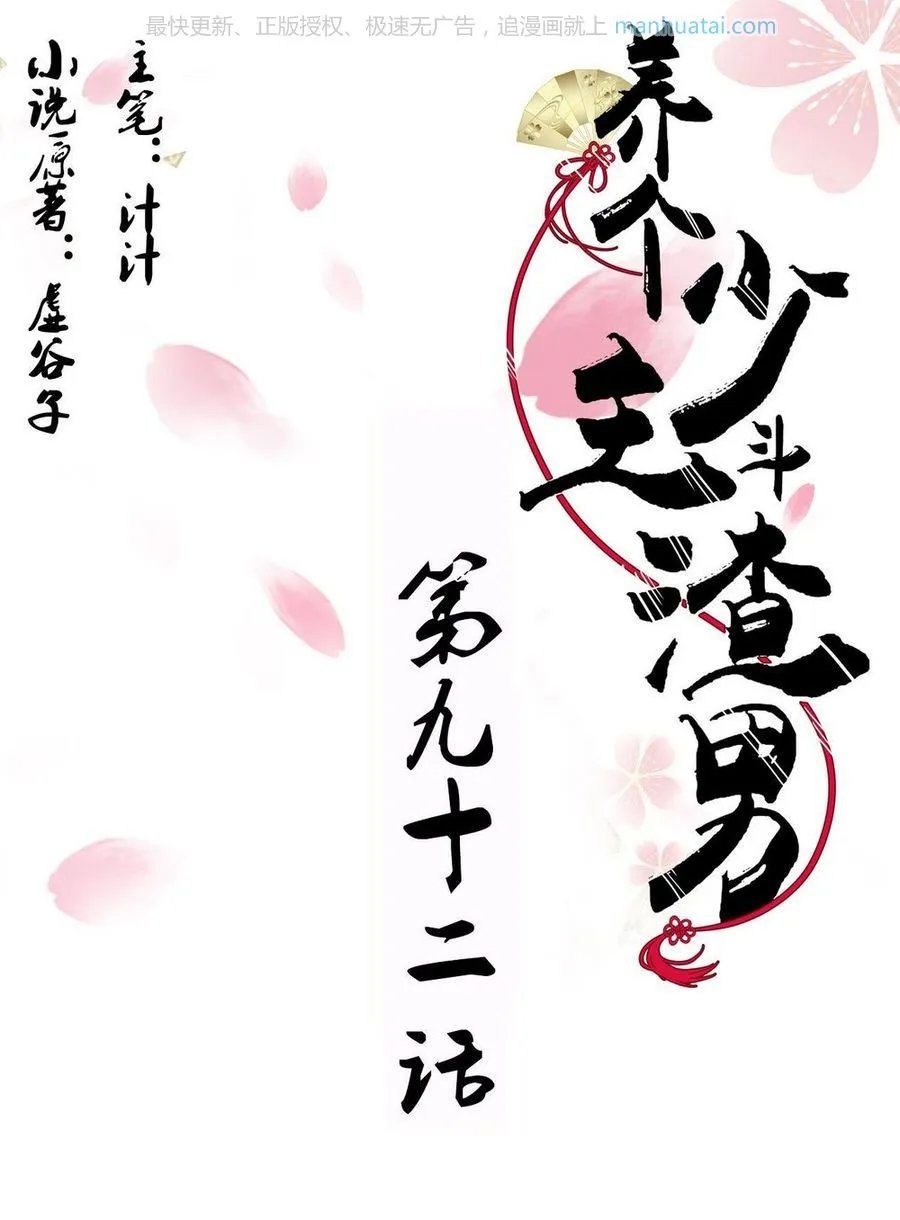 最快更新、正版授权、极速无广告，追漫画就上 manhuatai.com
养个少主斗渣男
第九十二话
主笔：计计
小说原著：虚谷子